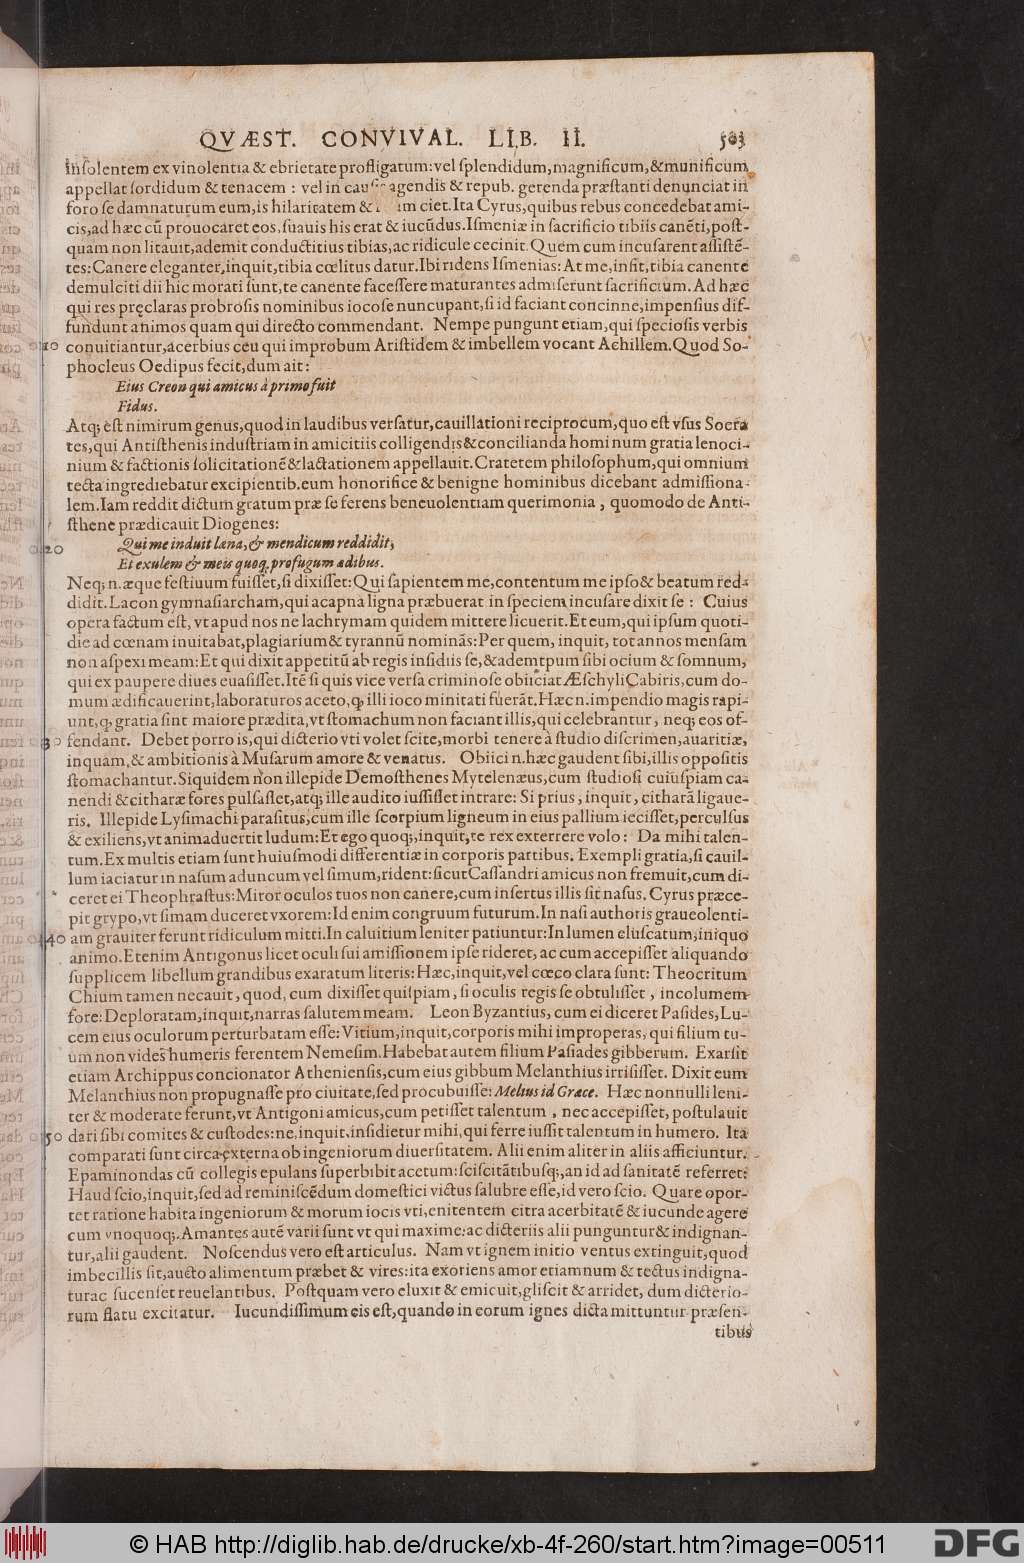 QVÆST. CONVIVAL. LIB. II. 503
insolentem ex vinolentia & ebrietate profligatum: vel splendidum, magnificum, & munificum
appellat sordidum & tenacem : vel in agendis & repub. gerenda præstanti denunciat in
foro se damnaturum eum, is hilaritatem & ciet. Ita Cyrus, quibus rebus concedebat ami-
cis, ad hæc cū prouocaret eos, suauis his erat & iucūdus. Ismeniæ in sacrificio tibiis canēti, post-
quam non litauit, ademit conductitius tibias, ac ridicule cecinit. Quem cum incusarent assistē-
tes: Canere eleganter, inquit, tibia cœlitus datur. Ibi ridens Ismenias: At me, insit, tibia canente
demulciti dii hic morati sunt, te canente facessere maturantes admiserunt sacrificium. Ad hæc
qui res pręclaras probrosis nominibus iocose nuncupant, si id faciant concinne, impensius dif-
fundunt animos quam qui directo commendant. Nempe pungunt etiam, qui speciosis verbis
10 conuitiantur, acerbius ceu qui improbum Aristidem & imbellem vocant Achillem. Quod So-
phocleus Oedipus fecit, dum ait:
Eius Creon qui amicus à primo fuit
Fidus.
Atq; est nimirum genus, quod in laudibus versatur, cauillationi reciprocum, quo est vsus Socra
tes, qui Antisthenis industriam in amicitiis colligendis & concilianda hominum gratia lenoci-
nium & factionis solicitationē & lactationem appellauit. Cratetem philosophum, qui omnium
tecta ingrediebatur excipientib. eum honorifice & benigne hominibus dicebant admissiona-
lem. Iam reddit dictum gratum præ se ferens beneuolentiam querimonia, quomodo de Anti-
sthene prædicauit Diogenes:
20 Qui me induit læna, & mendicum reddidit,
Et exulem & meis quoq, profugum ædibus.
Neq; n. æque festiuum fuisset, si dixisset: Qui sapientem me, contentum me ipso & beatum red-
didit. Lacon gymnasiarcham, qui acapna ligna præbuerat in speciem incusare dixit se : Cuius
opera factum est, vt apud nos ne lachrymam quidem mittere licuerit. Et eum, qui ipsum quoti-
die ad cœnam inuitabat, plagiarium & tyrannū nominās: Per quem, inquit, tot annos mensam
non aspexi meam: Et qui dixit appetitū ab regis insidiis se, & ademtpum sibi ocium & somnum,
qui ex paupere diues euasisset. Itē si quis vice versa criminose obiiciat Æschyli Cabiris, cum do-
mum ædificauerint, laboraturos aceto, q, illi ioco minitati fuerāt. Hæc n. impendio magis rapi-
unt, q, gratia sint maiore prædita, vt stomachum non faciant illis, qui celebrantur, neq; eos of-
30 fendant. Debet porro is, qui dicterio vti volet scite, morbi tenere à studio discrimen, auaritiæ,
inquam, & ambitionis à Musarum amore & venatus. Obiici n. hæc gaudent sibi, illis oppositis
stomachantur. Siquidem non illepide Demosthenes Mytelenæus, cum studiosi cuiuspiam ca-
nendi & citharæ fores pulsasset, atq; ille audito iussisset intrare: Si prius, inquit, citharā ligaue-
ris. Illepide Lysimachi parasitus, cum ille scorpium ligneum in eius pallium iecisset, perculsus
& exiliens, vt animaduertit ludum: Et ego quoq;, inquit, te rex exterrere volo : Da mihi talen-
tum. Ex multis etiam sunt huiusmodi differentiæ in corporis partibus. Exempli gratia, si cauil-
lum iaciatur in nasum aduncum vel simum, rident: sicut Cassandri amicus non fremuit, cum di-
ceret ei Theophrastus: Miror oculos tuos non canere, cum insertus illis sit nasus. Cyrus præce-
pit grypo, vt simam duceret vxorem: Id enim congruum futurum. In nasi authoris graueolenti-
40 am grauiter ferunt ridiculum mitti. In caluitium leniter patiuntur: In lumen eluscatum, iniquo
animo. Etenim Antigonus licet oculi sui amissionem ipse rideret, ac cum accepisset aliquando
supplicem libellum grandibus exaratum literis: Hæc, inquit, vel cœco clara sunt: Theocritum
Chium tamen necauit, quod, cum dixisset quispiam, si oculis regis se obtulisset, incolumem
fore: Deploratam, inquit, narras salutem meam. Leon Byzantius, cum ei diceret Pasides, Lu-
cem eius oculorum perturbatam esse: Vitium, inquit, corporis mihi improperas, qui filium tu-
um non vides humeris ferentem Nemesim. Habebat autem filium Pasiades gibberum. Exarsit
etiam Archippus concionator Atheniensis, cum eius gibbum Melanthius irrisisset. Dixit eum
Melanthius non propugnasse pro ciuitate, sed procubuisse: Melius id Græce. Hæc nonnulli leni-
ter & moderate ferunt, vt Antigoni amicus, cum petisset talentum, nec accepisset, postulauit
50 dari sibi comites & custodes: ne, inquit, insidietur mihi, qui ferre iussit talentum in humero. Ita
comparati sunt circa externa ob ingeniorum diuersitatem. Alii enim aliter in aliis afficiuntur.
Epaminondas cū collegis epulans superbibit acetum: sciscitātibusq;, an id ad sanitatē referret:
Haud scio, inquit, sed ad reminiscēdum domestici victus salubre esse, id vero scio. Quare opor-
tet ratione habita ingeniorum & morum iocis vti, enitentem citra acerbitatē & iucunde agere
cum vnoquoq;. Amantes autē varii sunt vt qui maxime: ac dicteriis alii punguntur & indignan-
tur, alii gaudent. Noscendus vero est articulus. Nam vt ignem initio ventus extinguit, quod
imbecillis sit, aucto alimentum præbet & vires: ita exoriens amor etiamnum & tectus indigna-
tur ac sucenset reuelantibus. Postquam vero eluxit & emicuit, gliscit & arridet, dum dicterio-
rum flatu excitatur. Iucundissimum eis est, quando in eorum ignes dicta mittuntur præsen-
tibus
© HAB http://diglib.hab.de/drucke/xb-4f-260/start.htm?image=00511
DFG